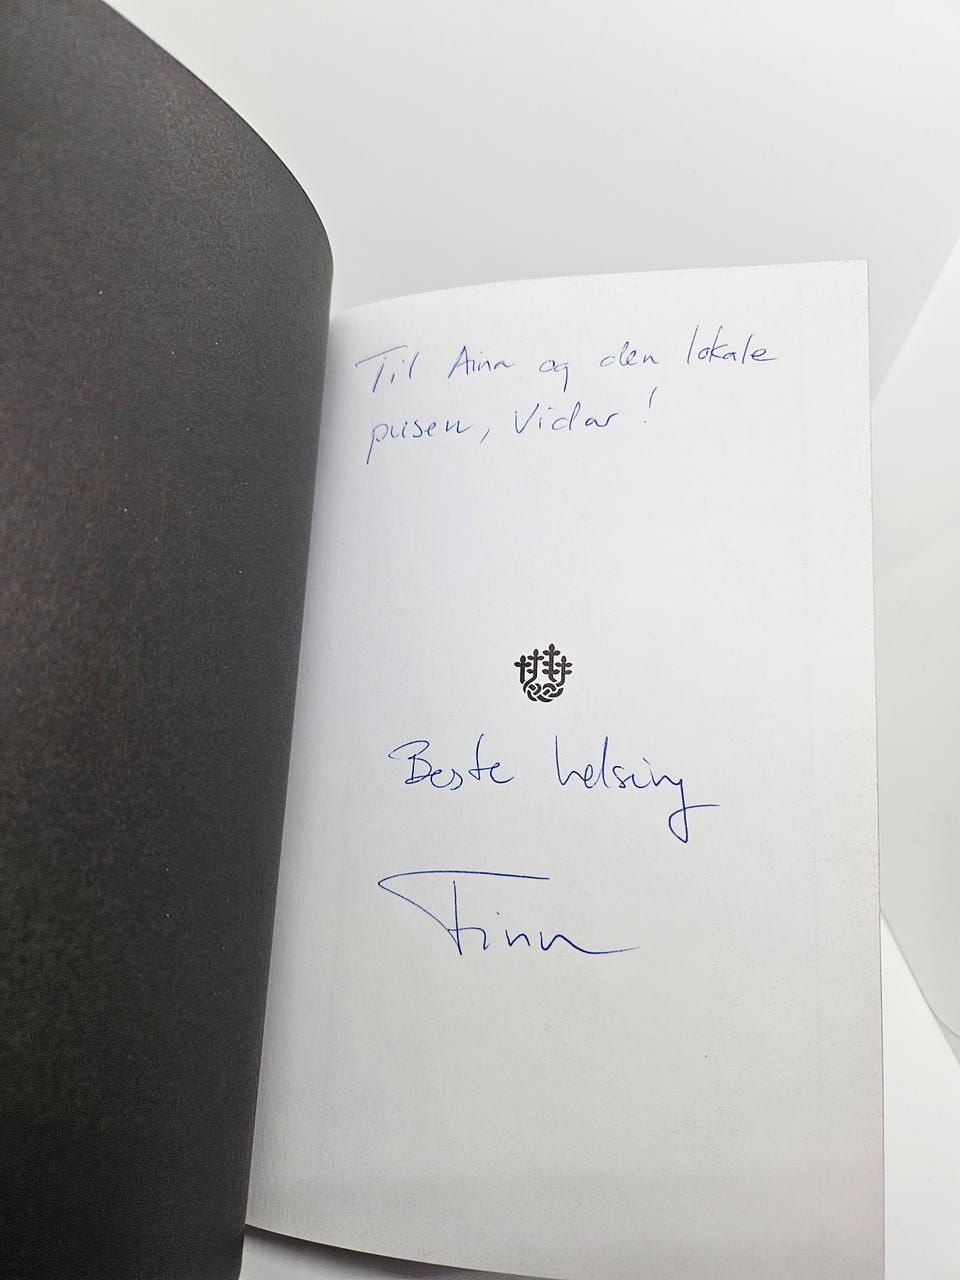 Til Aina og den lokale
pusen, Vidar!
Beste helsing
Finn